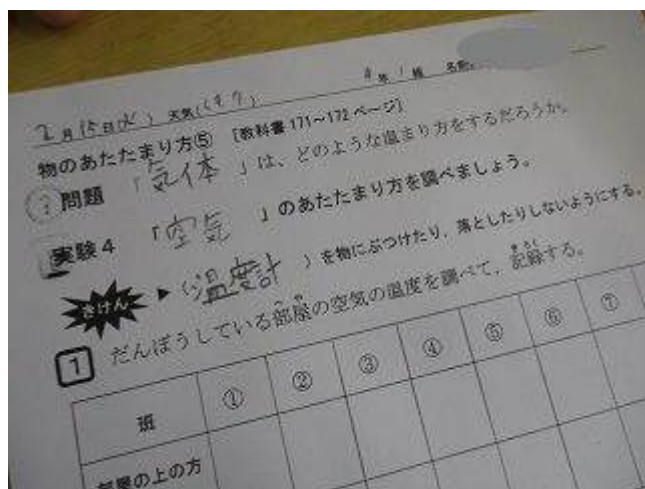 2月15日(火) 天気(くもり) 4年1組 名前
物のあたたまり方⑤ [教科書171~172ページ]
? 問題 「気体」は、どのような温まり方をするだろうか。
実験4 「空気」のあたたまり方を調べましょう。
きけん ▶ (温度計)を物にぶつけたり、落としたりしないようにする。
1 だんぼうしている部屋の空気の温度を調べて、記録する。
班 ① ② ③ ④ ⑤ ⑥ ⑦
部屋の上の方